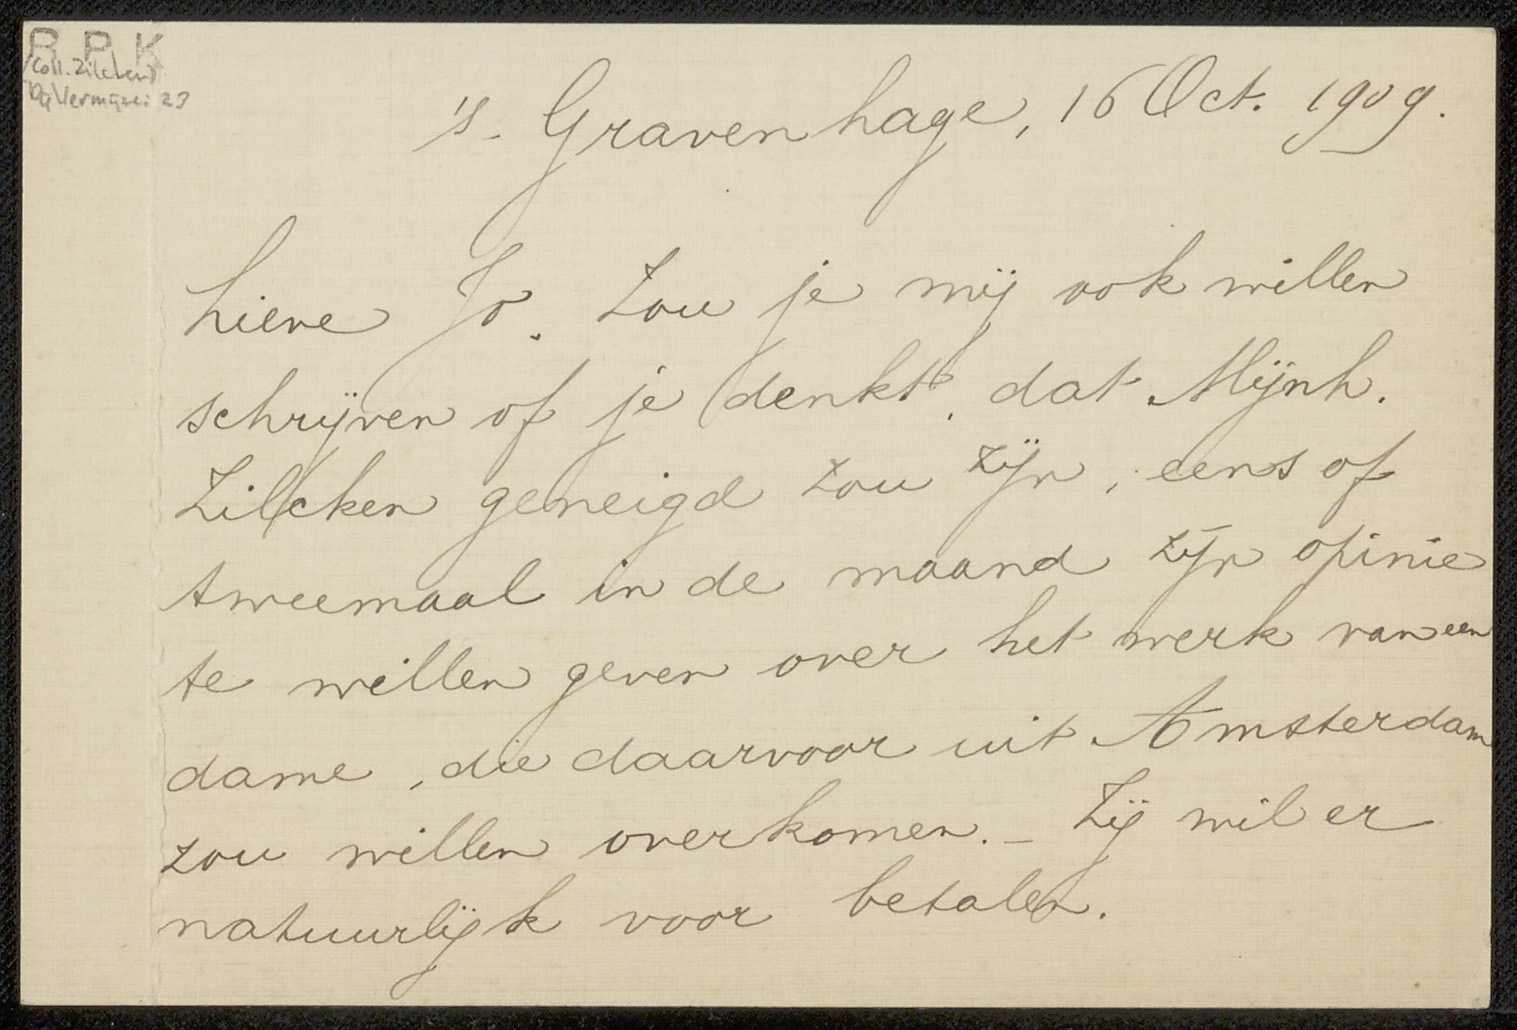 R P K
Coll. Zilcken
's-Gravenhage, 16 Oct. 1909.
Lieve Jo. Zou je mij ook willen
schrijven of je denkt, dat Mijnh.
Zilcken geneigd zou zijn, eens of
tweemaal in de maand zijn opinie
te willen geven over het werk van een
dame, die daarvoor uit Amsterdam
zou willen overkomen. – Zij wil er
natuurlijk voor betalen.